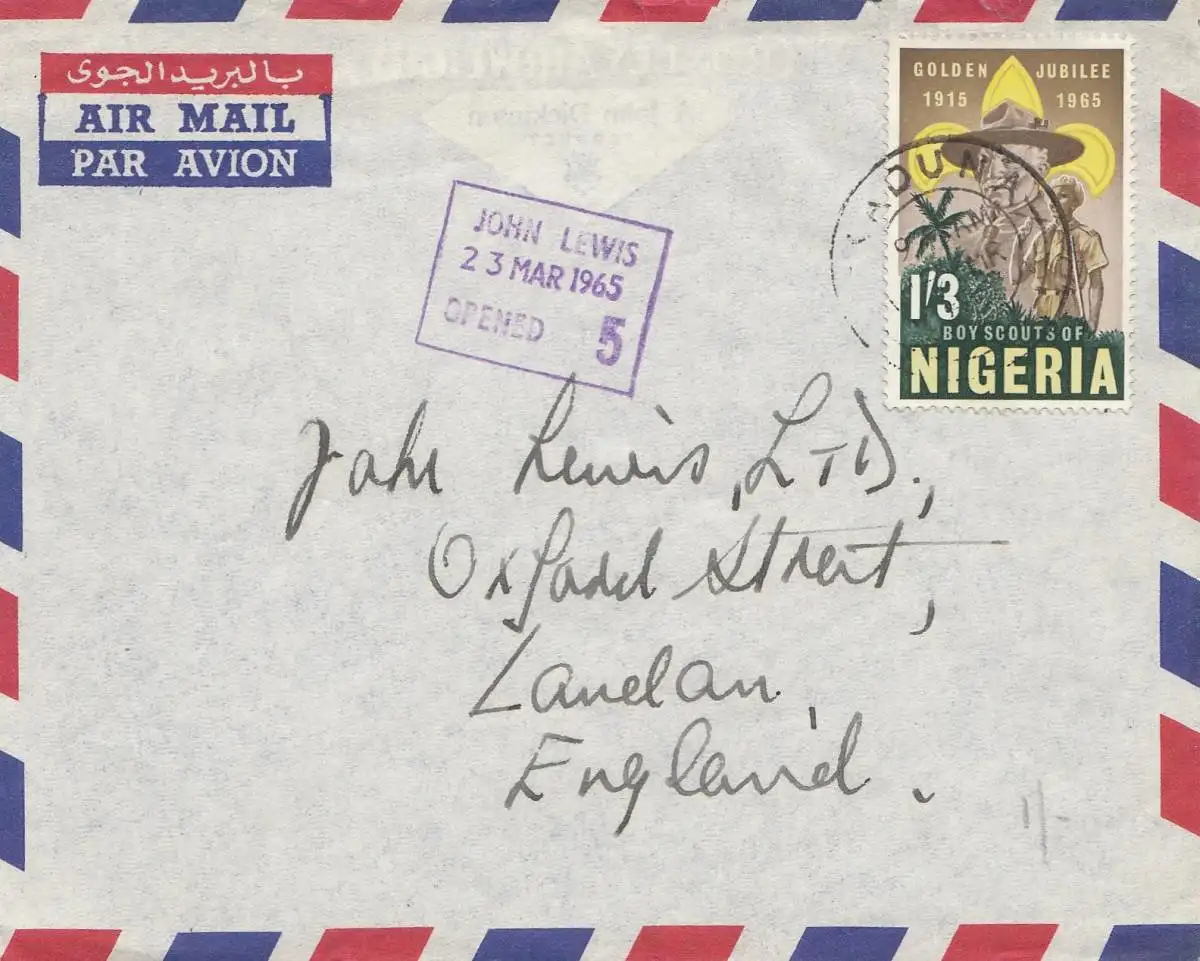 بالبريد الجوى
AIR MAIL
PAR AVION
GOLDEN JUBILEE
1915 1965
1/3
BOY SCOUTS OF
NIGERIA
JOHN LEWIS
23 MAR 1965
OPENED 5
John Lewis, LTD.,
Oxford Street,
London
England.
1/-